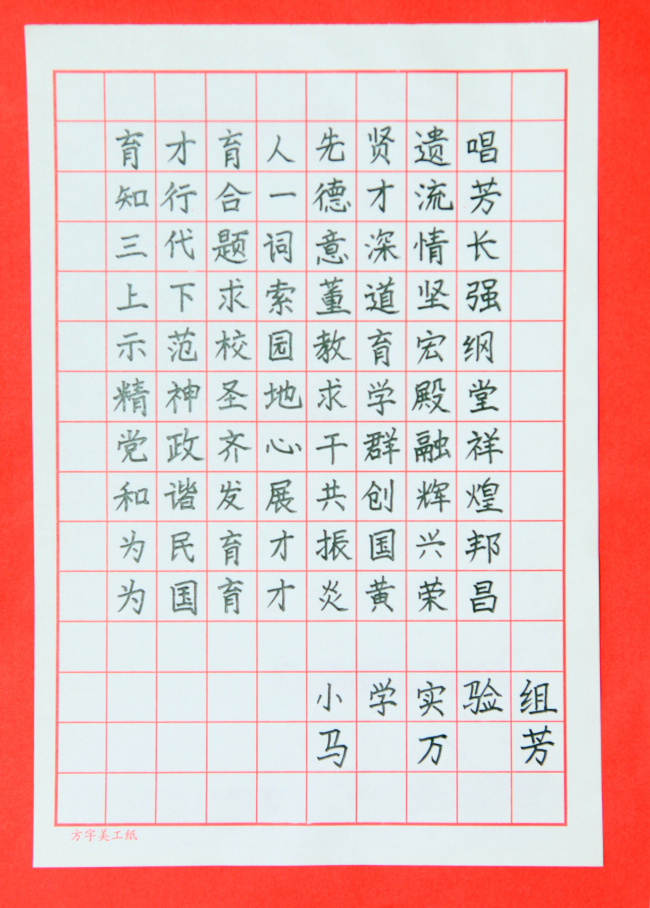 育才育人先贤遗唱
知行合一德才流芳
三代题词意深情长
上下求索董道坚强
示范校园教育宏纲
精神圣地求学殿堂
党政齐心干群融祥
和谐发展共创辉煌
为民育才振国兴邦
为国育才炎黄荣昌
小学实验组
马万芳
方字美工纸